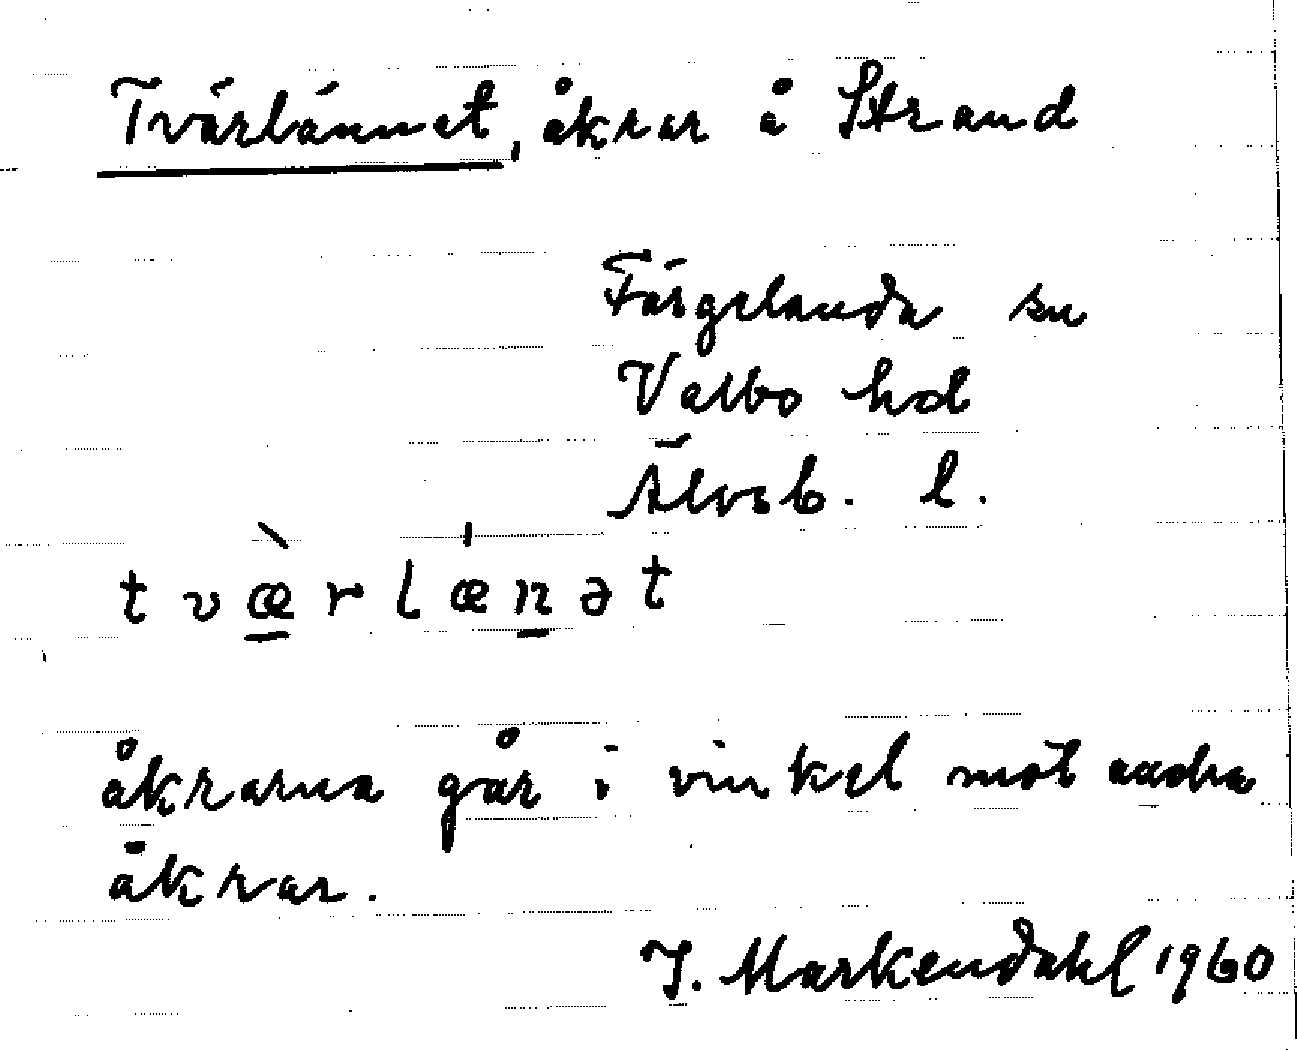 Tvärlännet, åkrar å Strand
Färgelanda sn
Valbo hd
Älvsb. l.
tvæ̲̀rlǽn̲ət
åkrarna går i vinkel mot andra
åkrar.
J. Markendahl 1960